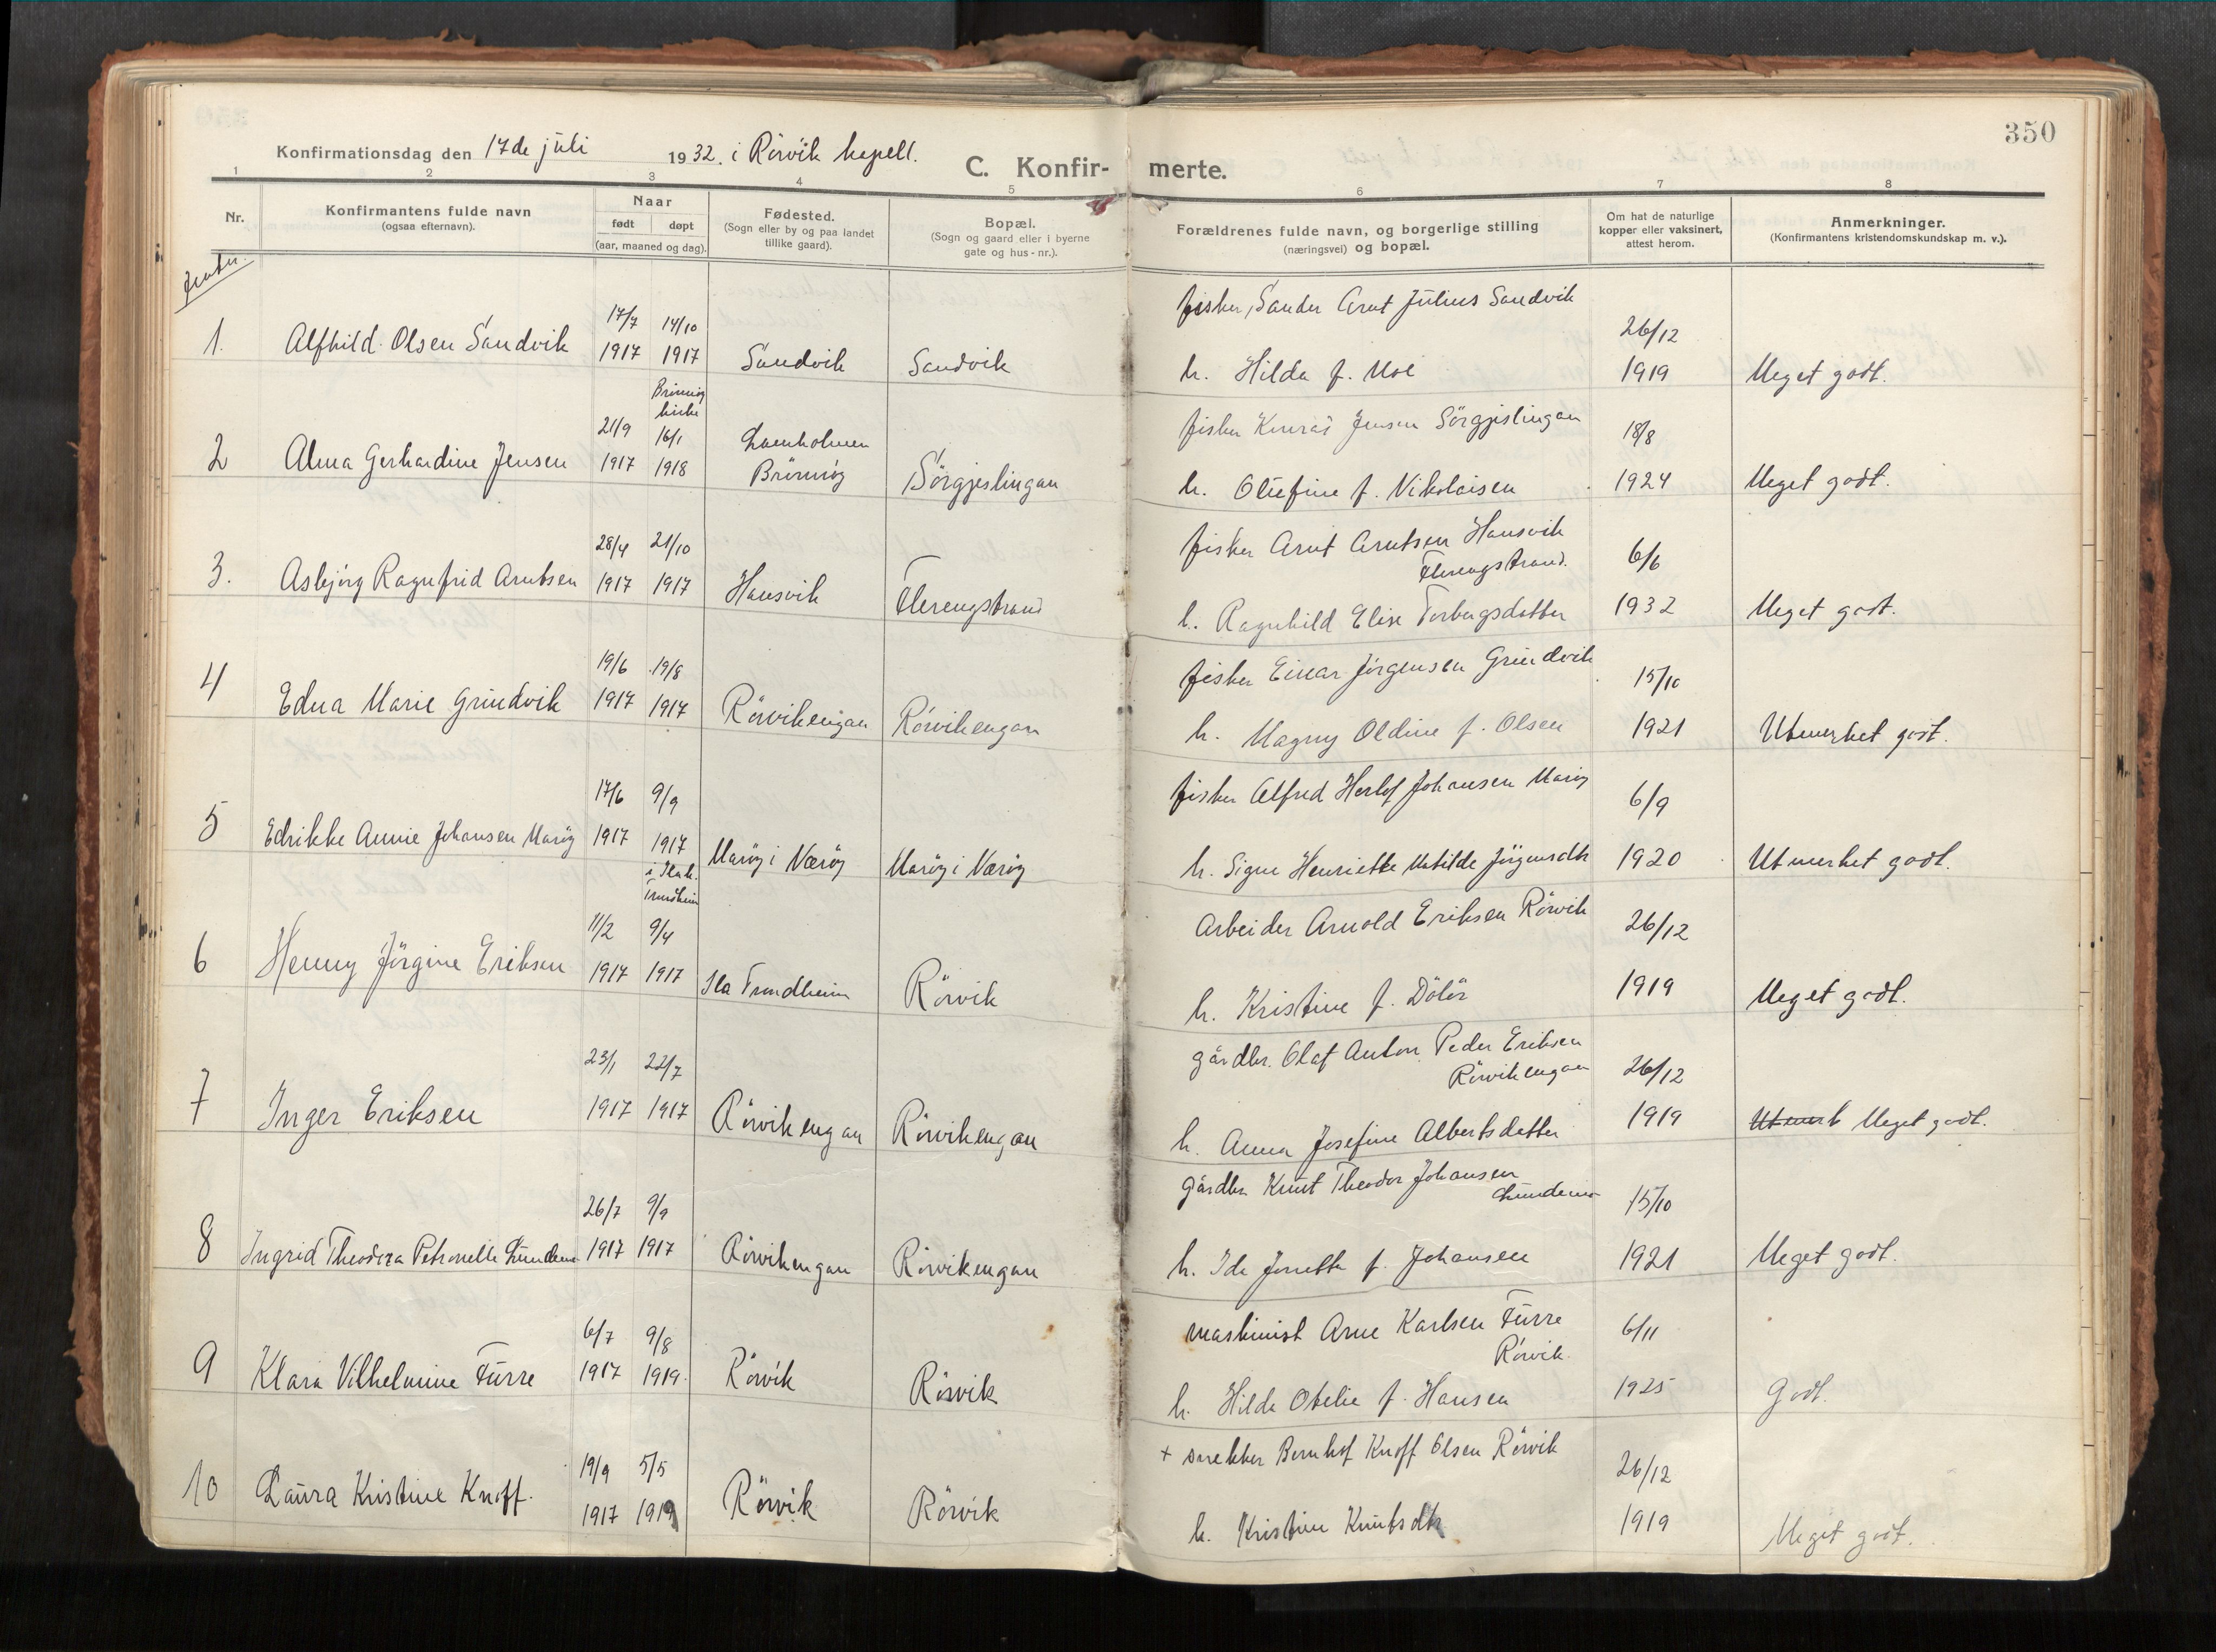 350
Konfirmationsdag den 17de juli 1932. i Rörvik kapell.
C. Konfir- merte.
1 2 3 4 5 6 7 8
Nr.
Konfirmantens fulde navn
(ogsaa efternavn).
Naar
født døpt
(aar, maaned og dag).
Fødested.
(Sogn eller by og paa landet
tillike gaard).
Bopæl.
(Sogn og gaard eller i byerne
gate og hus-nr.).
Forældrenes fulde navn, og borgerlige stilling
(næringsvei) og bopæl.
Om hat de naturlige
kopper eller vaksinert,
attest herom.
Anmerkninger.
(Konfirmantens kristendomskundskap m. v.).
Jenter.
fisker, Sander Arnt Julius Sandvik
17/7 14/10 26/12
1. Alfhild Olsen Sandvik 1917 1917 Sandvik Sandvik h. Hilda f. Moe 1919 Meget godt.
Brönnöy
kirke
fisker Konrad Jensen Sörgjeslingan
21/9 16/1 18/8
Brönnöy
2 Alma Gerhardine Jensen 1917 1918 Sörgjeslingan h. Olufine f. Nikolaisen 1924 Meget godt.
fisker Arnt Arntsen Hansvik
Flerengstrand.
28/4 21/10 6/6
3. Asbjörg Ragnfrid Arntsen 1917 1917 Hansvik Flerengstrand h. Ragnhild Elise Torbergsdatter 1932 Meget godt.
fisker Einar Jörgensen Grundvik
19/6 19/8 15/10
4 Edna Marie Grundvik 1917 1917 Rörvikengan Rörvikengan h. Magny Oldine f. Olsen 1921 Utmerket godt.
fisker Alfred Herlof Johansen Maröy
17/6 9/9 6/9
5 Edrikke Annie Johansen Maröy 1917 1917 Maröy i Næröy Maröy i Næröy h. Signe Henriette Matilde Jörgensdtr 1920 Utmerket godt.
Trondheim
Arbeider Arnold Eriksen Rörvik
11/2 9/4 26/12
6 Henny Jörgine Eriksen 1917 1917 Ila Trondheim Rörvik h. Kristine f. Dölör 1919 Meget godt.
gårdbr. Olaf Anton Peder Eriksen
Rörvikengan
23/1 22/7 26/12
7 Inger Eriksen 1917 1917 Rörvikengan Rörvikengan h. Anna Josefine Albertsdatter 1919 Utmerk Meget godt.
gårdbr Knut Theodor Johansen
Lundemo
26/7 9/9 15/10
8 Ingrid Theodora Petronelle Lundemo 1917 1917 Rörvikengan Rörvikengan h. Ida Jonette f. Johansen 1921 Meget godt.
maskinist Arne Karlsen Furre
Rörvik.
6/7 9/8 6/11
9 Klara Vilhelmine Furre 1917 1919. Rörvik Rörvik h. Hilda Otelie f. Hansen 1925 Godt.
+ snekker Bernhof Knoff Olsen Rörvik
19/9 5/5 26/12
10 Laura Kristine Knoff. 1917 1919 Rörvik Rörvik h. Kristine Knutsdtr 1919 Meget godt.